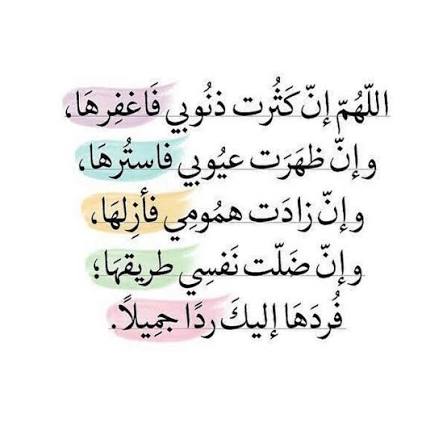 اللّهُمّ إنّ كَثُرت ذنُوبي فَاغفِرهَا،
وإنّ ظهَرَت عيُوبي فاستُرهَا،
وإنّ زادَت همُومِي فأزِلهَا،
وإنّ ضَلّت نَفسِي طريقهَا؛
فُردَهَا إليكَ ردًا جمِيلًا.